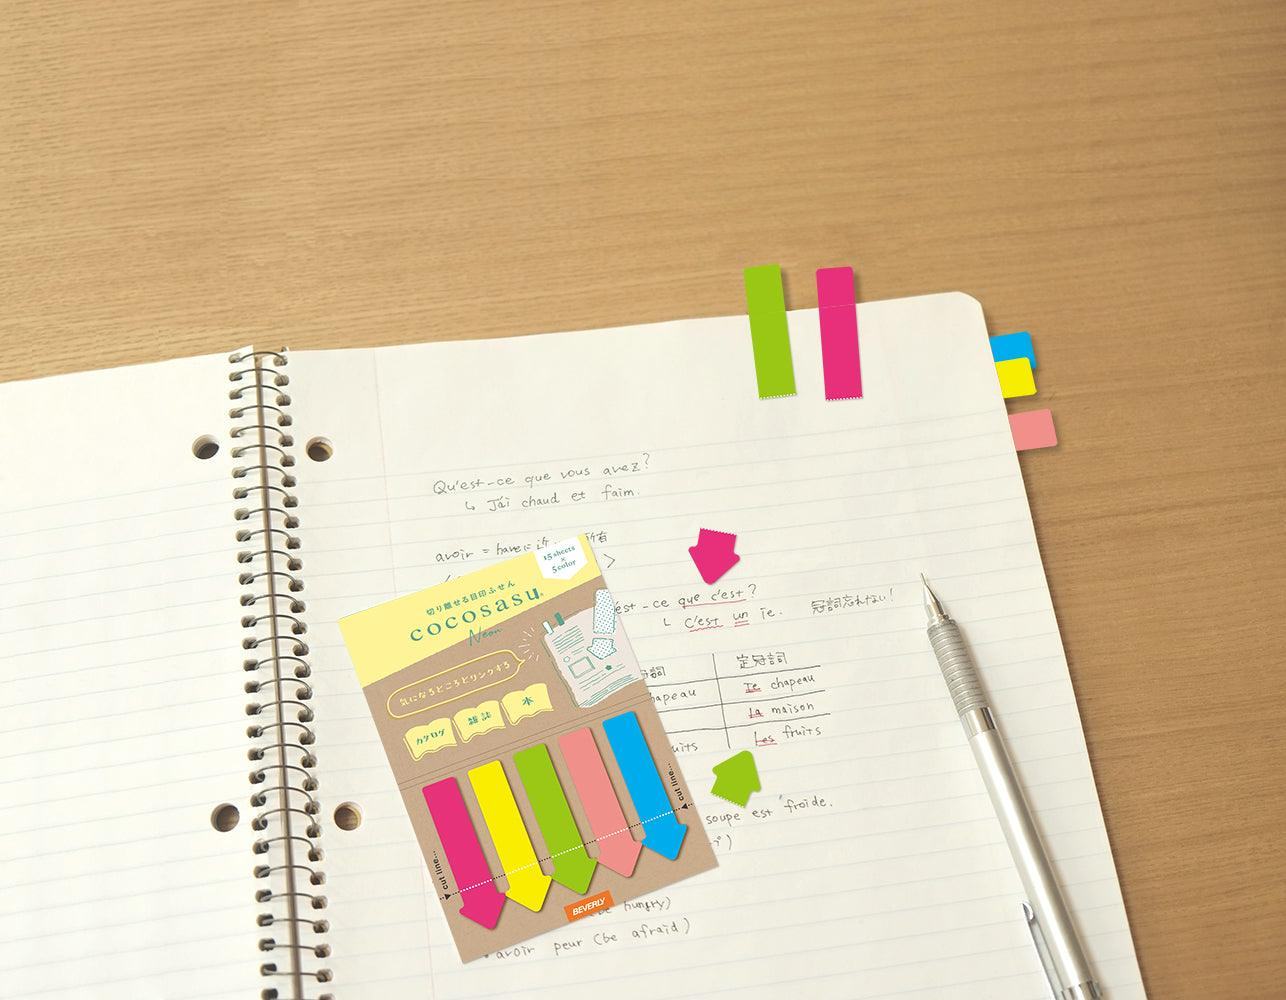 Qu'est-ce que vous avez?
↳ J'ai chaud et faim.
avoir = have
15 sheets
×
5 color
切り離せる目印ふせん
cocosasu
Neon
気になるところとリンクする
カタログ
雑誌
本
cut line...
cut line...
BEVERLY
est-ce que c'est?
c'est un
冠詞忘れない!
詞 定冠詞
chapeau le chapeau
la maison
uits les fruits
soupe est froide.
hungry)
・avoir peur (be afraid)